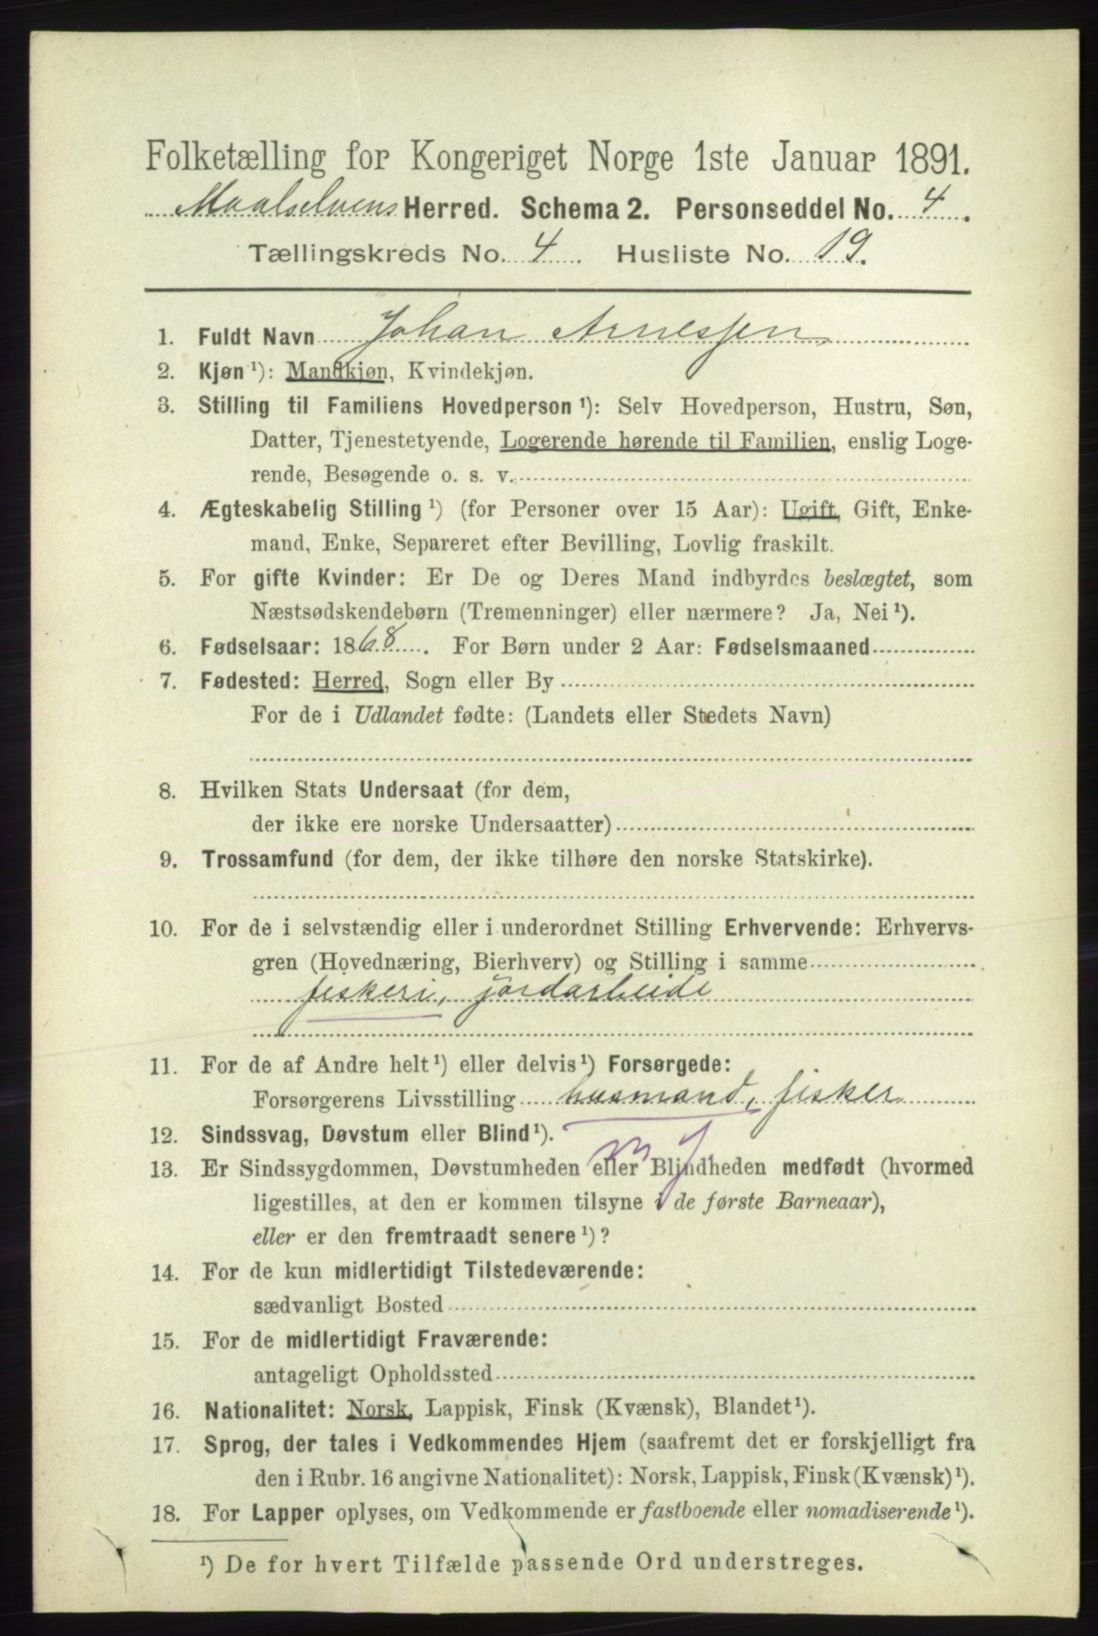 Folketælling for Kongeriget Norge 1ste Januar 1891.
Maalselvens Herred. Schema 2. Personseddel No. 4.
Tællingskreds No. 4. Husliste No. 19.
1. Fuldt Navn Johan Arnessen
2. Kjøn ¹): Mandkjøn, Kvindekjøn.
3. Stilling til Familiens Hovedperson ¹): Selv Hovedperson, Hustru, Søn,
Datter, Tjenestetyende, Logerende hørende til Familien, enslig Loge-
rende, Besøgende o. s. v.
4. Ægteskabelig Stilling ¹) (for Personer over 15 Aar): Ugift, Gift, Enke-
mand, Enke, Separeret efter Bevilling, Lovlig fraskilt.
5. For gifte Kvinder: Er De og Deres Mand indbyrdes beslægtet, som
Næstsødskendebørn (Tremenninger) eller nærmere? Ja, Nei ¹).
6. Fødselsaar: 1868. For Børn under 2 Aar: Fødselsmaaned
7. Fødested: Herred, Sogn eller By
For de i Udlandet fødte: (Landets eller Stedets Navn)
8. Hvilken Stats Undersaat (for dem,
der ikke ere norske Undersaatter)
9. Trossamfund (for dem, der ikke tilhøre den norske Statskirke).
10. For de i selvstændig eller i underordnet Stilling Erhvervende: Erhvervs-
gren (Hovednæring, Bierhverv) og Stilling i samme
fiskeri, jordarbeide
11. For de af Andre helt ¹) eller delvis ¹) Forsørgede:
Forsørgerens Livsstilling husmand, fisker
12. Sindssvag, Døvstum eller Blind ¹).
13. Er Sindssygdommen, Døvstumheden eller Blindheden medfødt (hvormed
ligestilles, at den er kommen tilsyne i de første Barneaar),
eller er den fremtraadt senere ¹)?
14. For de kun midlertidigt Tilstedeværende:
sædvanligt Bosted
15. For de midlertidigt Fraværende:
antageligt Opholdssted
16. Nationalitet: Norsk, Lappisk, Finsk (Kvænsk), Blandet ¹).
17. Sprog, der tales i Vedkommendes Hjem (saafremt det er forskjelligt fra
den i Rubr. 16 angivne Nationalitet): Norsk, Lappisk, Finsk (Kvænsk) ¹).
18. For Lapper oplyses, om Vedkommende er fastboende eller nomadiserende ¹).
¹) De for hvert Tilfælde passende Ord understreges.